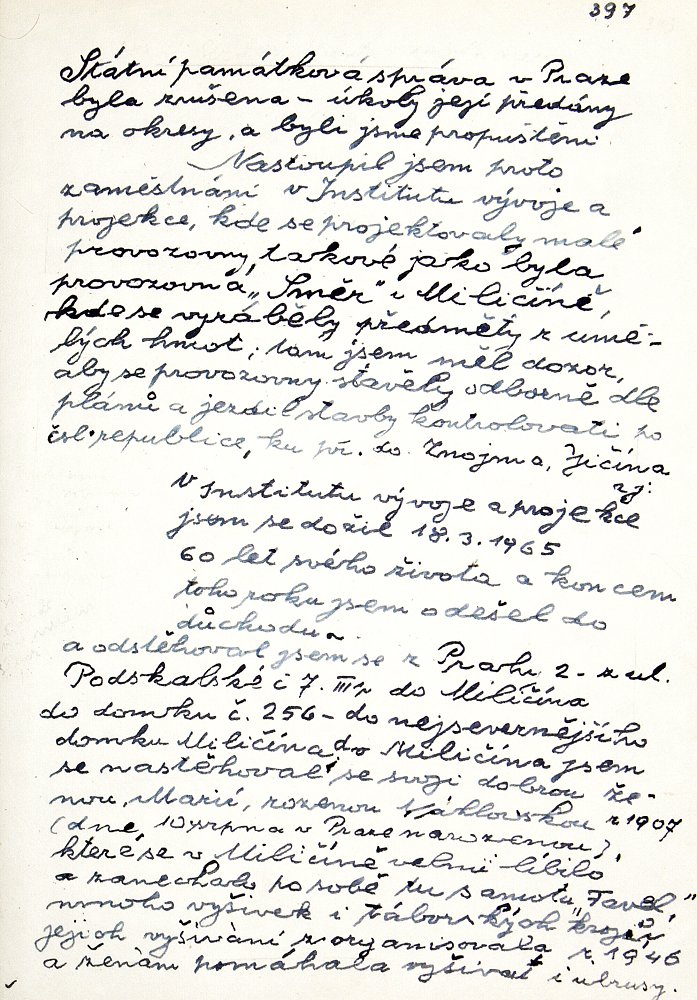 397
Státní památková správa v Praze
byla zrušena – úkoly její předány
na okresy, a byli jsme propuštěni.
Nastoupil jsem proto
zaměstnání v Institutu vývoje a
projekce, kde se projektovaly malé
provozovny, takové jako byla
provozovna „Směr" v Miličíně,
kde se vyráběly předměty z umě-
lých hmot; tam jsem měl dozor,
aby se provozovny stavěly odborně dle
plánů a jezdil stavby kontrolovati po
čsl. republice, ku př. do Znojma, Jičína
v Institutu vývoje a projekce
jsem se dožil 18. 3. 1965
60 let svého života a koncem
toho roku jsem odešel do
důchodu.
a odstěhoval jsem se z Prahy 2 – z ul.
Podskalské č 7. III p do Miličína
do domku č. 256 – do nejsevernějšího
domku Miličína do Miličína jsem
se nastěhoval se svojí dobrou že-
nou, Marií, rozenou r 1907
(dne 10 srpna v Praze narozenou),
které se v Miličíně velmi líbilo
a zanechala po sobě tu samotu
mnoho výšivek i táborských krojů
jejich vyšívání zorganisovala r. 1946
a ženám pomáhala vyšívat i ubrusy.